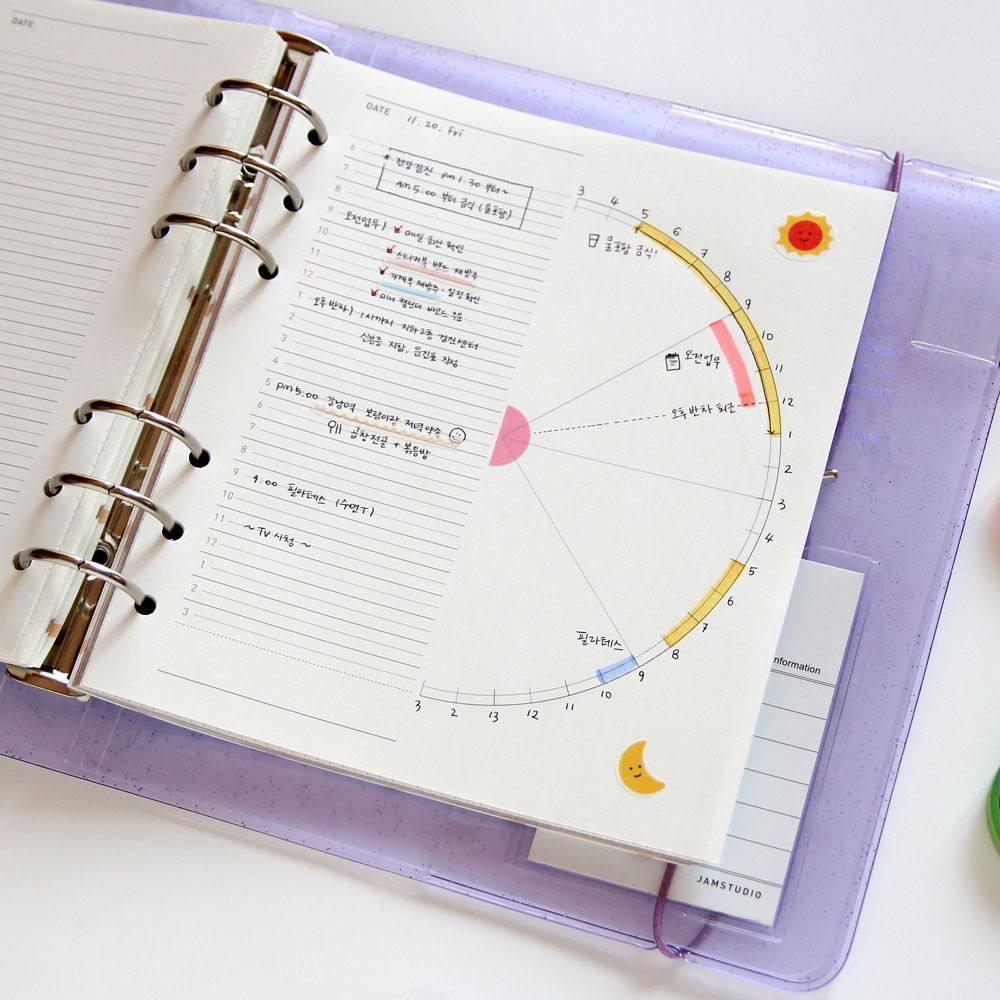 DATE
DATE 11. 20. Fri
6
* 건강검진 pm 1:30 부터~
7
AM 5:00 부터 금식 (물포함)
8
9
오전업무) ✓ 메일 회신 확인
10
✓ 스티커북 밴드 재발주
11
✓ 가계부 재발주, 일정 확인
12
✓ 미니 캘린더 바코드 주문
1
오후반차) 1시까지 지하2층 검진센터
2
신분증 지참, 문진표 작성
3
4
5
pm 5:00 강남역 보람이랑 저녁약소
6
곱창전골 + 볶음밥
7
8
9
9:00 필라테스 (수연T)
10
11
~ TV 시청 ~
12
1
2
3
3
4
5
물포함 금식!
6
7
8
9
10
오전업무
11
오후반차 퇴근
12
1
2
3
4
5
6
7
8
필라테스
9
10
11
12
13
2
3
information
JAMSTUDIO